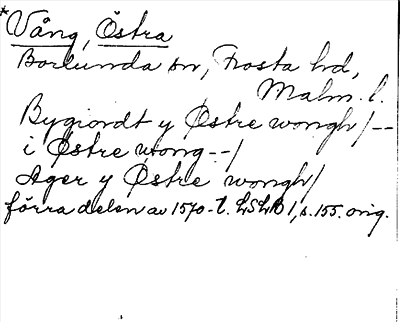 *Vång, Östra
Borlunda sn, Frosta hd,
Malm. l.
Bygiordt y Østre wongh/--
i Østre wong--/
Ager y Østre wongh/
förra delen av 1570-t. LSLB 1, s. 155. orig.